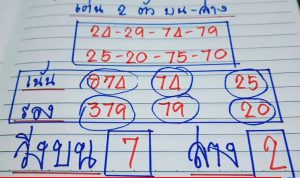 เด่น 2 ตัว บน-ล่าง
24-29-74-79
25-20-75-70
เน้น 874 74 25
รอง 379 79 20
วิ่งบน 7 ล่าง 2